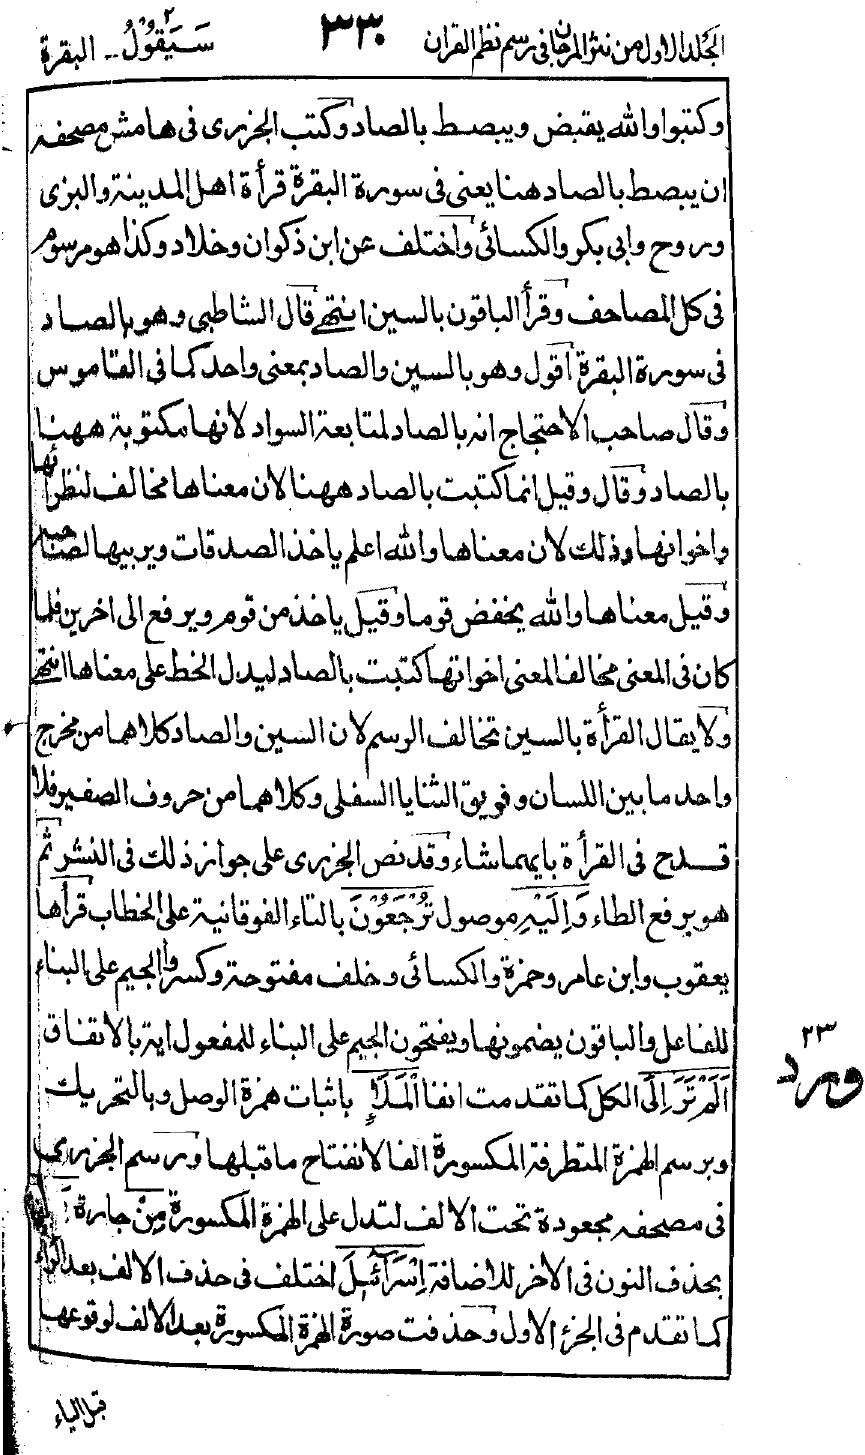 الجلد الاول من نثر المرجان فى رسم نظم القران
٣٣٠
سَيَقُوْلُ ٢ - البقرة
وكتبوا والله يقبض ويبصط بالصاد وكتب الجزرى فى هامش مصحفه
ان يبصط بالصاد هنا يعنى فى سورة البقرة قرأة اهل المدينة والبزى
وروح وابى بكر والكسائى واختلف عن ابن ذكوان وخلاد وكذا هو مرسوم
فى كل المصاحف وقرأ الباقون بالسين انتهى قال الشاطبى وهو بالصاد
فى سورة البقرة اقول وهو بالسين والصاد بمعنى واحد كما فى القاموس
وقال صاحب الاحتجاج انه بالصاد لمتابعة السواد لانها مكتوبة ههنا
بالصاد وقال وقيل انما كتبت بالصاد ههنا لان معناها مخالف لنظرائها
واخواتها وذلك لان معناها والله اعلم ياخذ الصدقات ويربيها لصاحبه
وقيل معناها والله يخفض قوما وقيل ياخذ من قوم ويرفع الى اخرين فلما
كان فى المعنى مخالفا لمعنى اخواتها كتبت بالصاد ليدل الخط على معناها انتهى
ولا يقال القرأة بالسين تخالف الرسم لان السين والصاد كلاهما من مخرج
واحد ما بين اللسان وفويق الثنايا السفلى وكلاهما من حروف الصفير فلا
قدح فى القرأة بايهما شاء وقد نص الجزرى على جواز ذلك فى النشر ثم
هو برفع الطاء وَاِلَيْهِ موصول تُرْجَعُوْنَ بالتاء الفوقانية على الخطاب قرأها
يعقوب وابن عامر وحمزة والكسائى وخلف مفتوحة وكسروا الجيم على البناء
للفاعل والباقون يضمونها ويفتحون الجيم على البناء للمفعول اية بالاتفاق
اَلَمْ تَرَ اِلَى الكل كما تقدمت انفا الْمَلَأِ باثبات همزة الوصل وبالتحريك
وبرسم الهمزة المتطرفة المكسورة الفا لانفتاح ما قبلها ورسم الجزرى
فى مصحفه مجعودة تحت الالف لتدل على الهمزة المكسورة مِنْ جارة
بحذف النون فى الاخر للاضافة اِسْرَآئِيْلَ اختلف فى حذف الالف بعد الراء
كما تقدم فى الجزء الاول وحذفت صورة الهمزة المكسورة بعد الالف لوقوعها
قبل الياء
٢٣
ورد